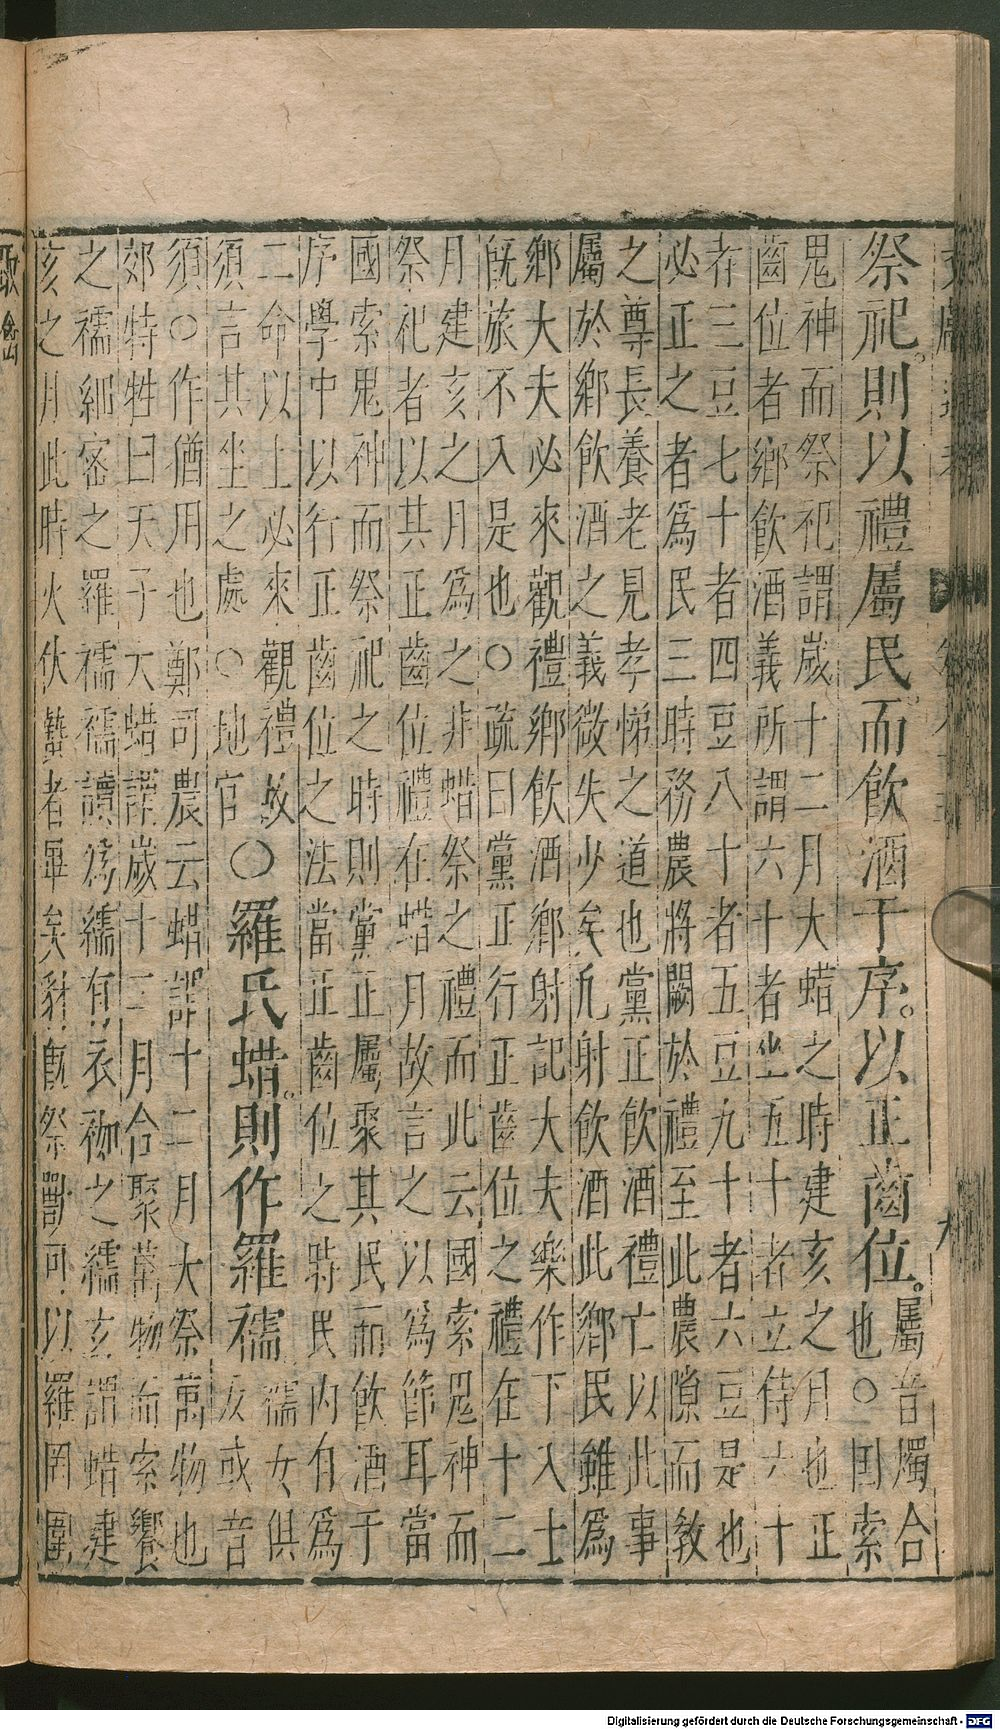 祭祀則以禮屬民而飲酒于序以正齒位屬音燭合
也○國索
鬼神而祭祀謂歲十二月大蜡之時建亥之月也正
齒位者鄉飲酒義所謂六十者坐五十者立侍六十
者三豆七十者四豆八十者五豆九十者六豆是也
必正之者爲民三時務農將闕於禮至此農隙而敎
之尊長養老見孝悌之道也黨正飲酒禮亡以此事
屬於鄉飲酒之義微失少矣凡射飲酒此鄉民雖爲
鄉大夫必來觀禮鄉飲酒鄉射記大夫樂作不入士
旣旅不入是也○疏曰黨正行正齒位之禮在十二
月建亥之月爲之非蜡祭之禮而此云國索鬼神而
祭祀者以其正齒位禮在蜡月故言之以爲節耳當
國索鬼神而祭祀之時則黨正屬聚其民而飲酒于
序學中以行正齒位之法當正齒位之時民內有爲
二命以上必來觀禮故
須言其坐之處○地官○羅氏蜡則作羅襦襦女俱
反或音
須○作猶用也鄭司農云蜡謂十二月大祭萬物也
郊特牲曰天子大蜡謂歲十二月合聚萬物而索饗
之襦細密之羅襦襦讀爲繻有衣袽之繻玄謂蜡建
亥之月此時火伏蟄者畢矣豺旣祭獸可以羅罔圍
Digitalisierung gefördert durch die Deutsche Forschungsgemeinschaft - DFG